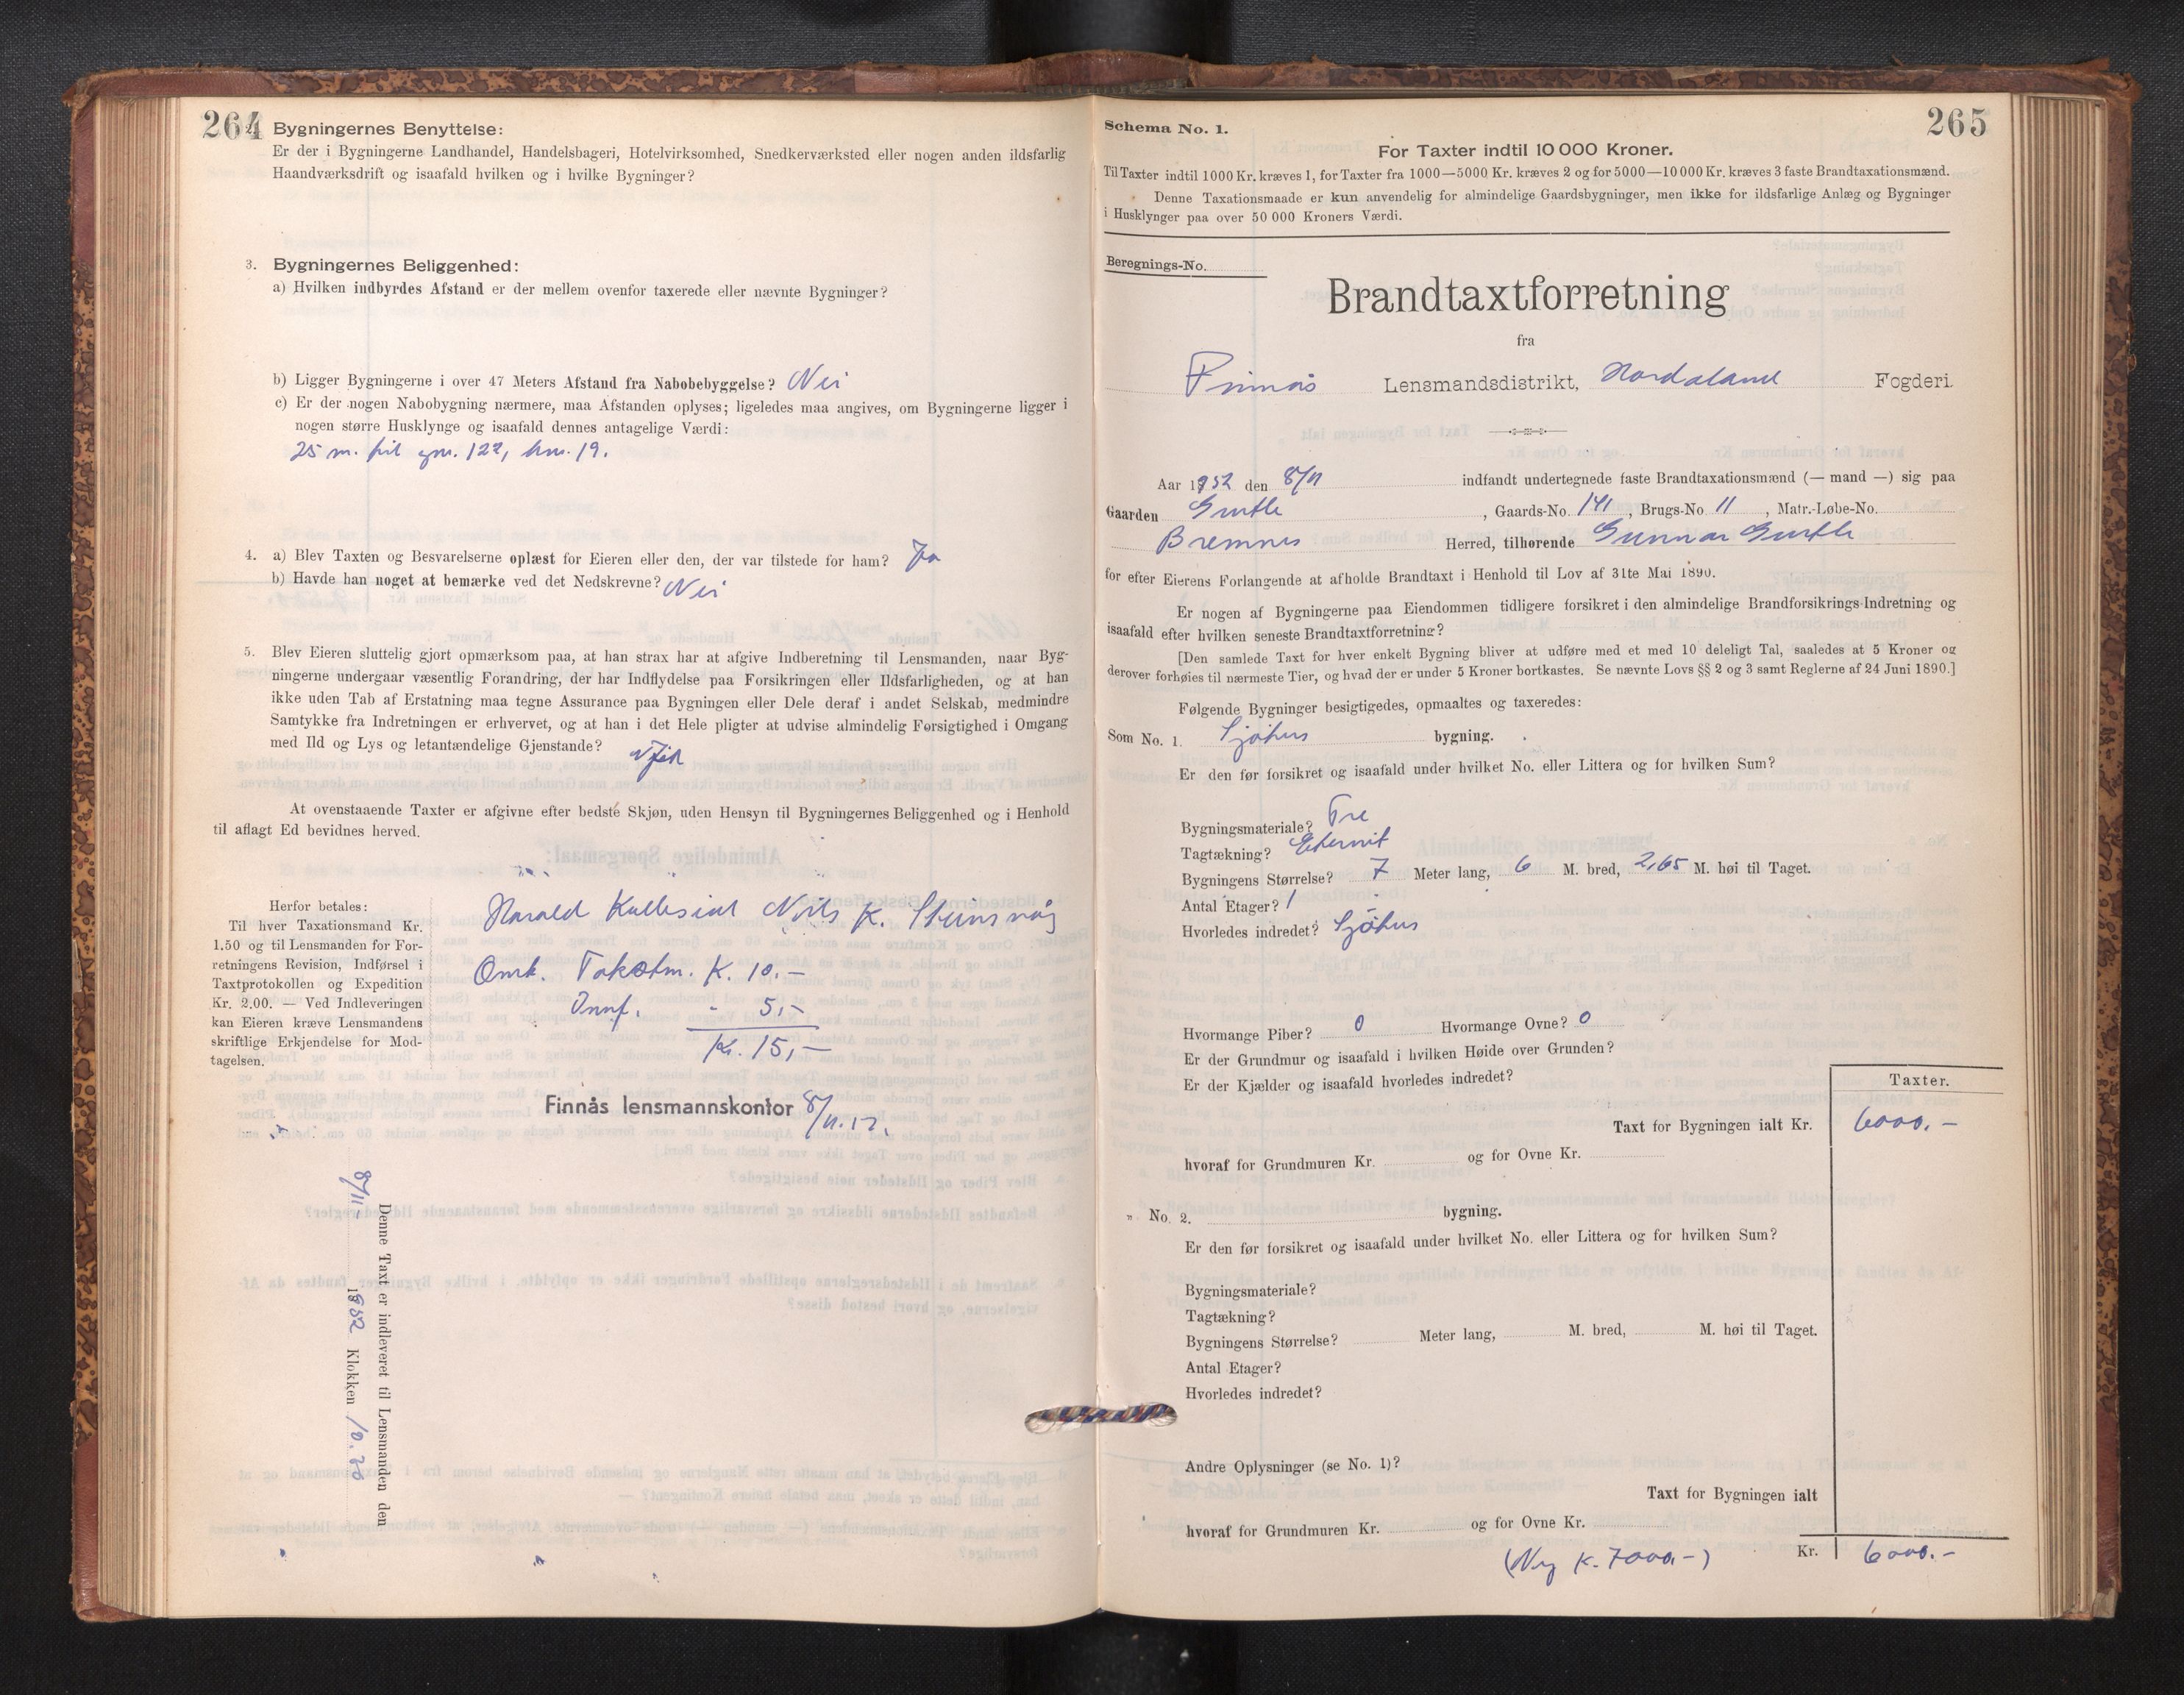 264
Bygningernes Benyttelse:
Er der i Bygningerne Landhandel, Handelsbageri, Hotelvirksomhed, Snedkerværksted eller nogen anden ildsfarlig
Haandværksdrift og isaafald hvilken og i hvilke Bygninger?
3. Bygningernes Beliggenhed:
a) Hvilken indbyrdes Afstand er der mellem ovenfor taxerede eller nævnte Bygninger?
b) Ligger Bygningerne i over 47 Meters Afstand fra Nabobebyggelse? Nei
c) Er der nogen Nabobygning nærmere, maa Afstanden oplyses; ligeledes maa angives, om Bygningerne ligger i
nogen større Husklynge og isaafald dennes antagelige Værdi:
25 m. til gnr. 122, bnr. 19.
4. a) Blev Taxten og Besvarelserne oplæst for Eieren eller den, der var tilstede for ham? Ja
b) Havde han noget at bemærke ved det Nedskrevne? Nei
5. Blev Eieren sluttelig gjort opmærksom paa, at han strax har at afgive Indberetning til Lensmanden, naar Byg-
ningerne undergaar væsentlig Forandring, der har Indflydelse paa Forsikringen eller Ildsfarligheden, og at han
ikke uden Tab af Erstatning maa tegne Assurance paa Bygningen eller Dele deraf i andet Selskab, medmindre
Samtykke fra Indretningen er erhvervet, og at han i det Hele pligter at udvise almindelig Forsigtighed i Omgang
med Ild og Lys og letantændelige Gjenstande?
At ovenstaaende Taxter er afgivne efter bedste Skjøn, uden Hensyn til Bygningernes Beliggenhed og i Henhold
til aflagt Ed bevidnes herved.
Herfor betales:
Til hver Taxationsmand Kr.
1.50 og til Lensmanden for For-
retningens Revision, Indførsel i
Taxtprotokollen og Expedition
Kr. 2.00. — Ved Indleveringen
kan Eieren kræve Lensmandens
skriftlige Erkjendelse for Mod-
tagelsen.
Harald Nils K.
Omk. Takstm. K. 10.-
Innf. - 5,-
Kr. 15,-
Finnås lensmannskontor 8/11.52.
Denne Taxt er indleveret til Lensmanden den
8/11- 1952 Klokken 10.30
265
Schema No. 1.
For Taxter indtil 10 000 Kroner.
Til Taxter indtil 1000 Kr. kræves 1, for Taxter fra 1000—5000 Kr. kræves 2 og for 5000—10 000 Kr. kræves 3 faste Brandtaxationsmænd.
Denne Taxationsmaade er kun anvendelig for almindelige Gaardsbygninger, men ikke for ildsfarlige Anlæg og Bygninger
i Husklynger paa over 50 000 Kroners Værdi.
Beregnings-No.
Brandtaxtforretning
fra
Finnås Lensmandsdistrikt, Hordaland Fogderi.
Aar 1952 den 8/11 indfandt undertegnede faste Brandtaxationsmænd (— mand —) sig paa
Gaarden , Gaards-No. 141, Brugs-No 11, Matr.-Løbe-No.
Bremnes Herred, tilhørende Gunnar
for efter Eierens Forlangende at afholde Brandtaxt i Henhold til Lov af 31te Mai 1890.
Er nogen af Bygningerne paa Eiendommen tidligere forsikret i den almindelige Brandforsikrings-Indretning og
isaafald efter hvilken seneste Brandtaxtforretning?
[Den samlede Taxt for hver enkelt Bygning bliver at udføre med et med 10 deleligt Tal, saaledes at 5 Kroner og
derover forhøies til nærmeste Tier, og hvad der er under 5 Kroner bortkastes. Se nævnte Lovs §§ 2 og 3 samt Reglerne af 24 Juni 1890.]
Følgende Bygninger besigtigedes, opmaaltes og taxeredes:
Som No. 1. Sjøhus bygning.
Er den før forsikret og isaafald under hvilket No. eller Littera og for hvilken Sum?
Bygningsmateriale? Tre
Tagtækning? Eternit
Bygningens Størrelse? 7 Meter lang, 6 M. bred, 2,65 M. høi til Taget.
Antal Etager? 1
Hvorledes indredet? Sjøhus
Hvormange Piber? 0 Hvormange Ovne? 0
Er der Grundmur og isaafald i hvilken Høide over Grunden?
Er der Kjælder og isaafald hvorledes indredet?
Taxter.
Taxt for Bygningen ialt Kr. 6000.-
hvoraf for Grundmuren Kr. og for Ovne Kr.
„ No. 2. bygning.
Er den før forsikret og isaafald under hvilket No. eller Littera og for hvilken Sum?
Bygningsmateriale?
Tagtækning?
Bygningens Størrelse? Meter lang, M. bred, M. høi til Taget.
Antal Etager?
Hvorledes indredet?
Andre Oplysninger (se No. 1)?
Taxt for Bygningen ialt
hvoraf for Grundmuren Kr. og for Ovne Kr.
(Ny K. 7000.-) Kr. 6000.-